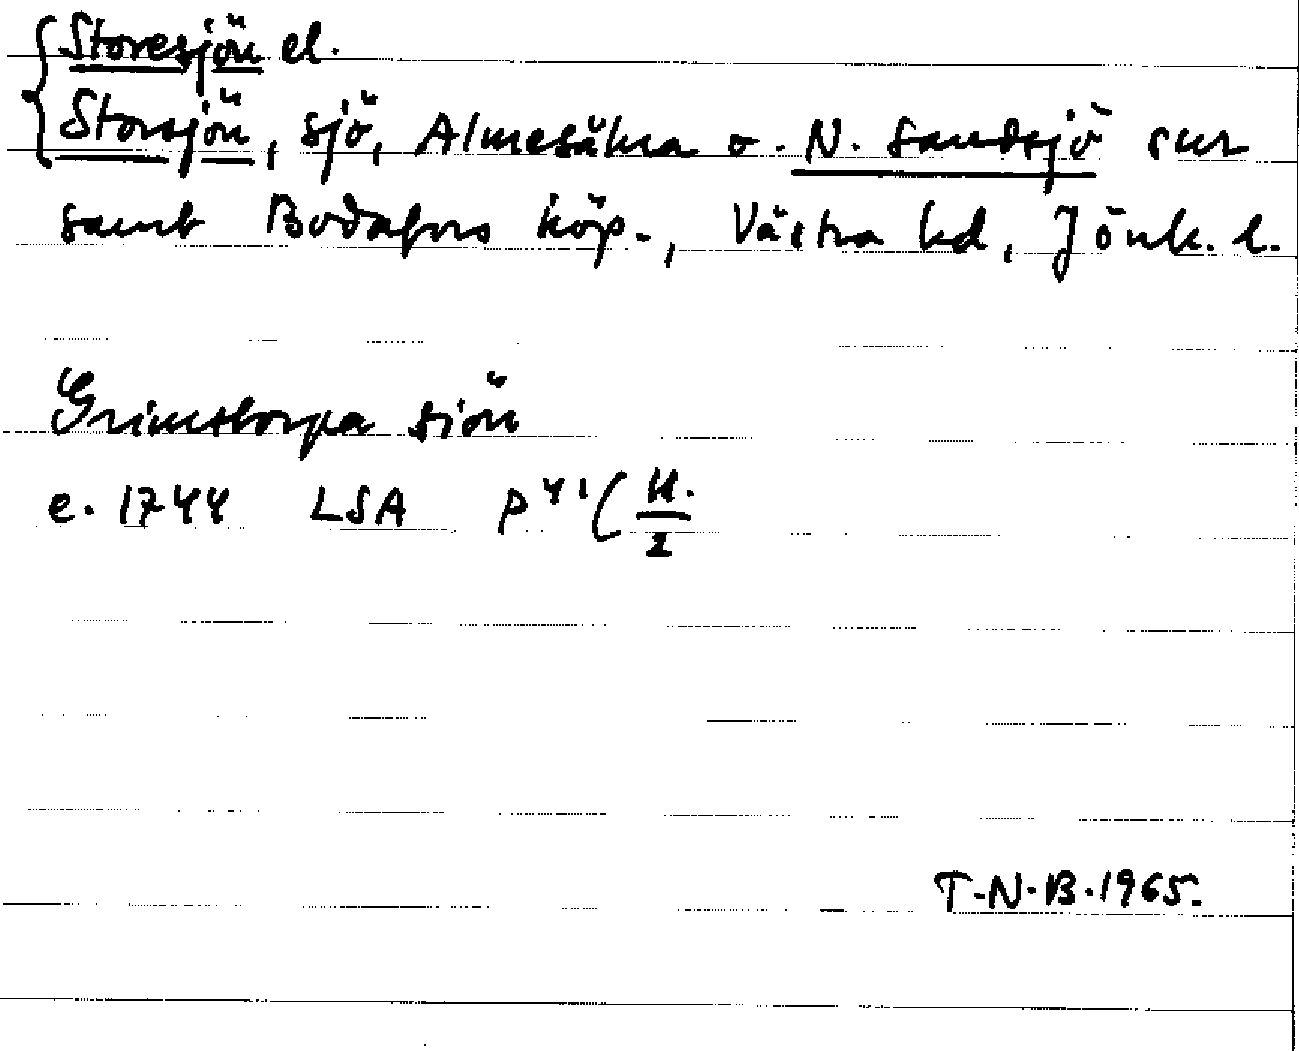 Storesjön el.
Storsjön, sjö, Almesåkra o. N. Sandsjö snr
samt Bodafors köp., Västra hd, Jönk. l.
Grimstorpa siön
e. 1744 LSA P 41 (
T.N.B. 1965.